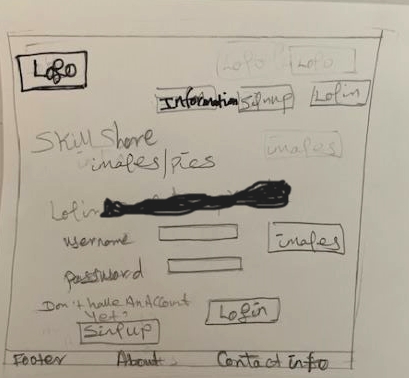 Logo
Information Signup Login
Skill Share
images/pics
images
Login
username
images
password
Don't have An Account
Yet?
Login
Signup
Footer About Contact info